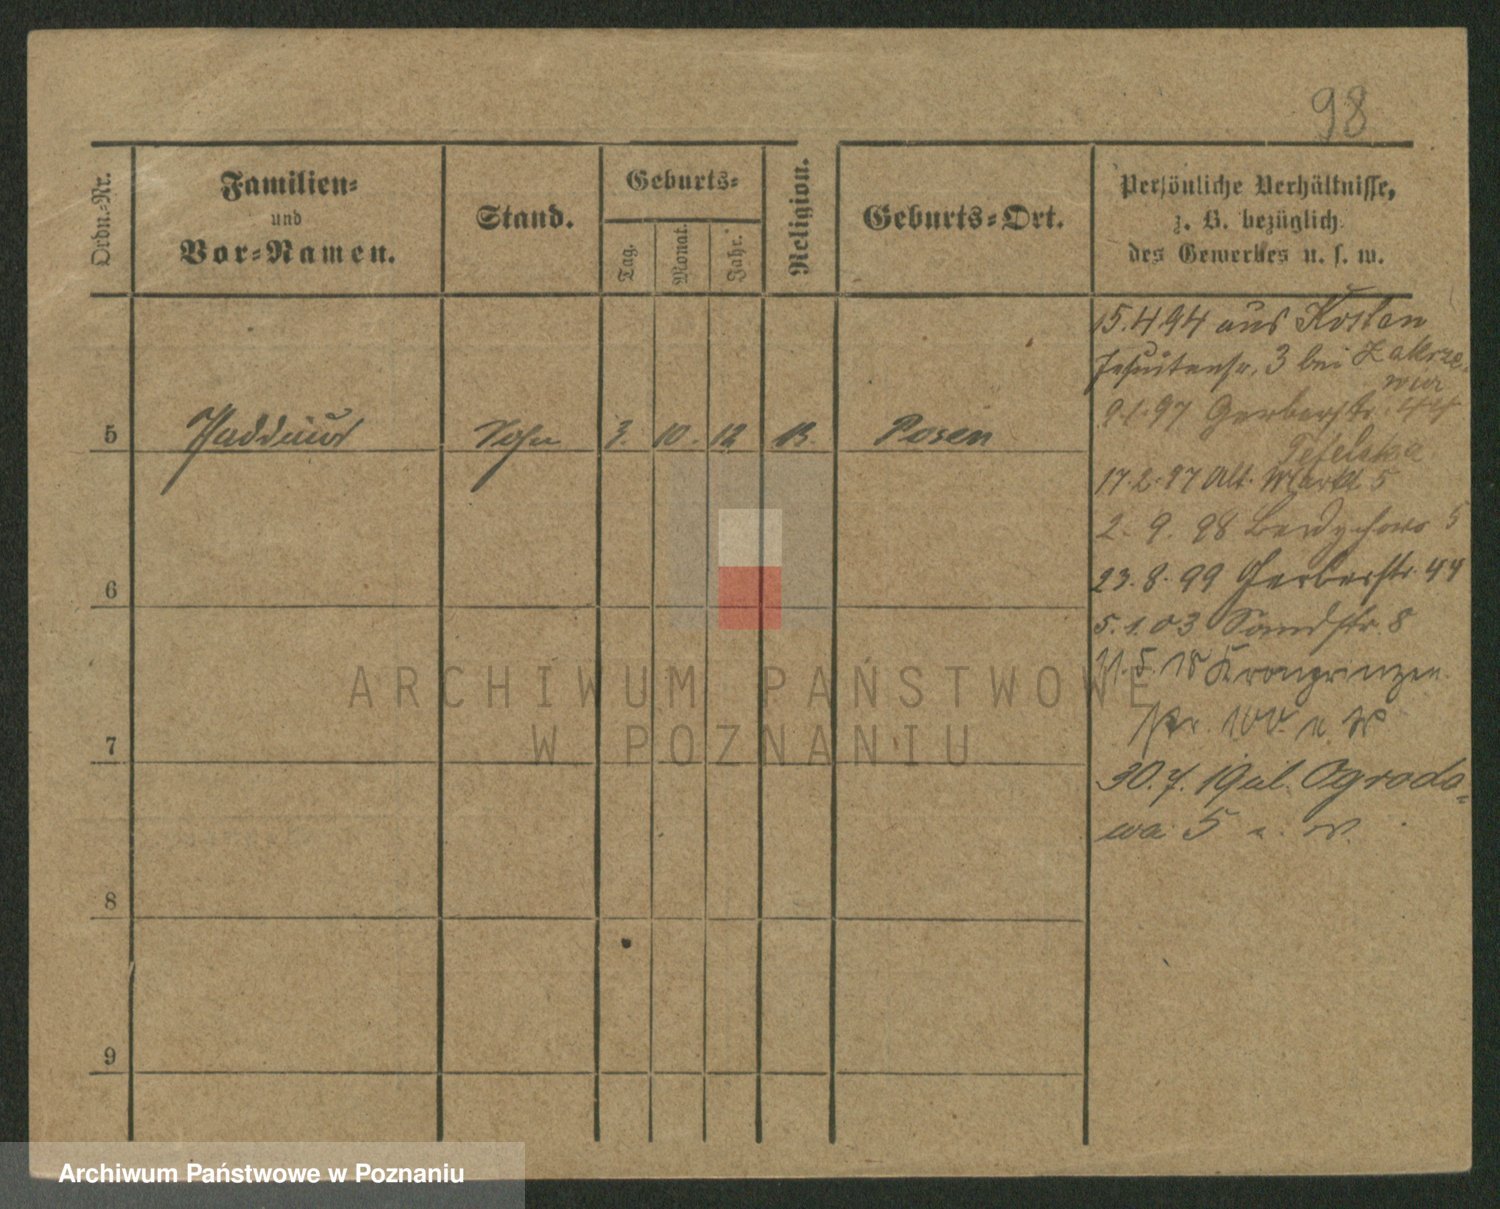 98
Ordn.-Nr.
Familien-
und
Vor-Namen.
Stand.
Geburts-
Tag.
Monat.
Jahr.
Religion.
Geburts-Ort.
Persönliche Verhältnisse,
z. B. bezüglich
des Gewerbes u. s. w.
15.4.94 aus Kosten
Jesuitenstr. 3 bei Zakrze-
wicz
9.1.97 Gerberstr. 44
5 Thaddäus Sohn 3. 10. 12 13. Posen
17.2.97 Alt. Markt 5
2. 9. 98 Berdychowo 5
23. 8. 99 Gerberstr. 44
5. 1. 03 Sandstr. 8
6
5. 18 Kronprinzen
Nr. 100. u. W
7
30. 7. 19 ul. Ogrodo-
wa 5 u. W.
8
9
ARCHIWUM PAŃSTWOWE
W POZNANIU
Archiwum Państwowe w Poznaniu